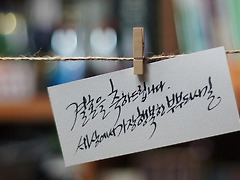 결혼을 축하드립니다.
세상에서 가장 행복한 부부 되시길